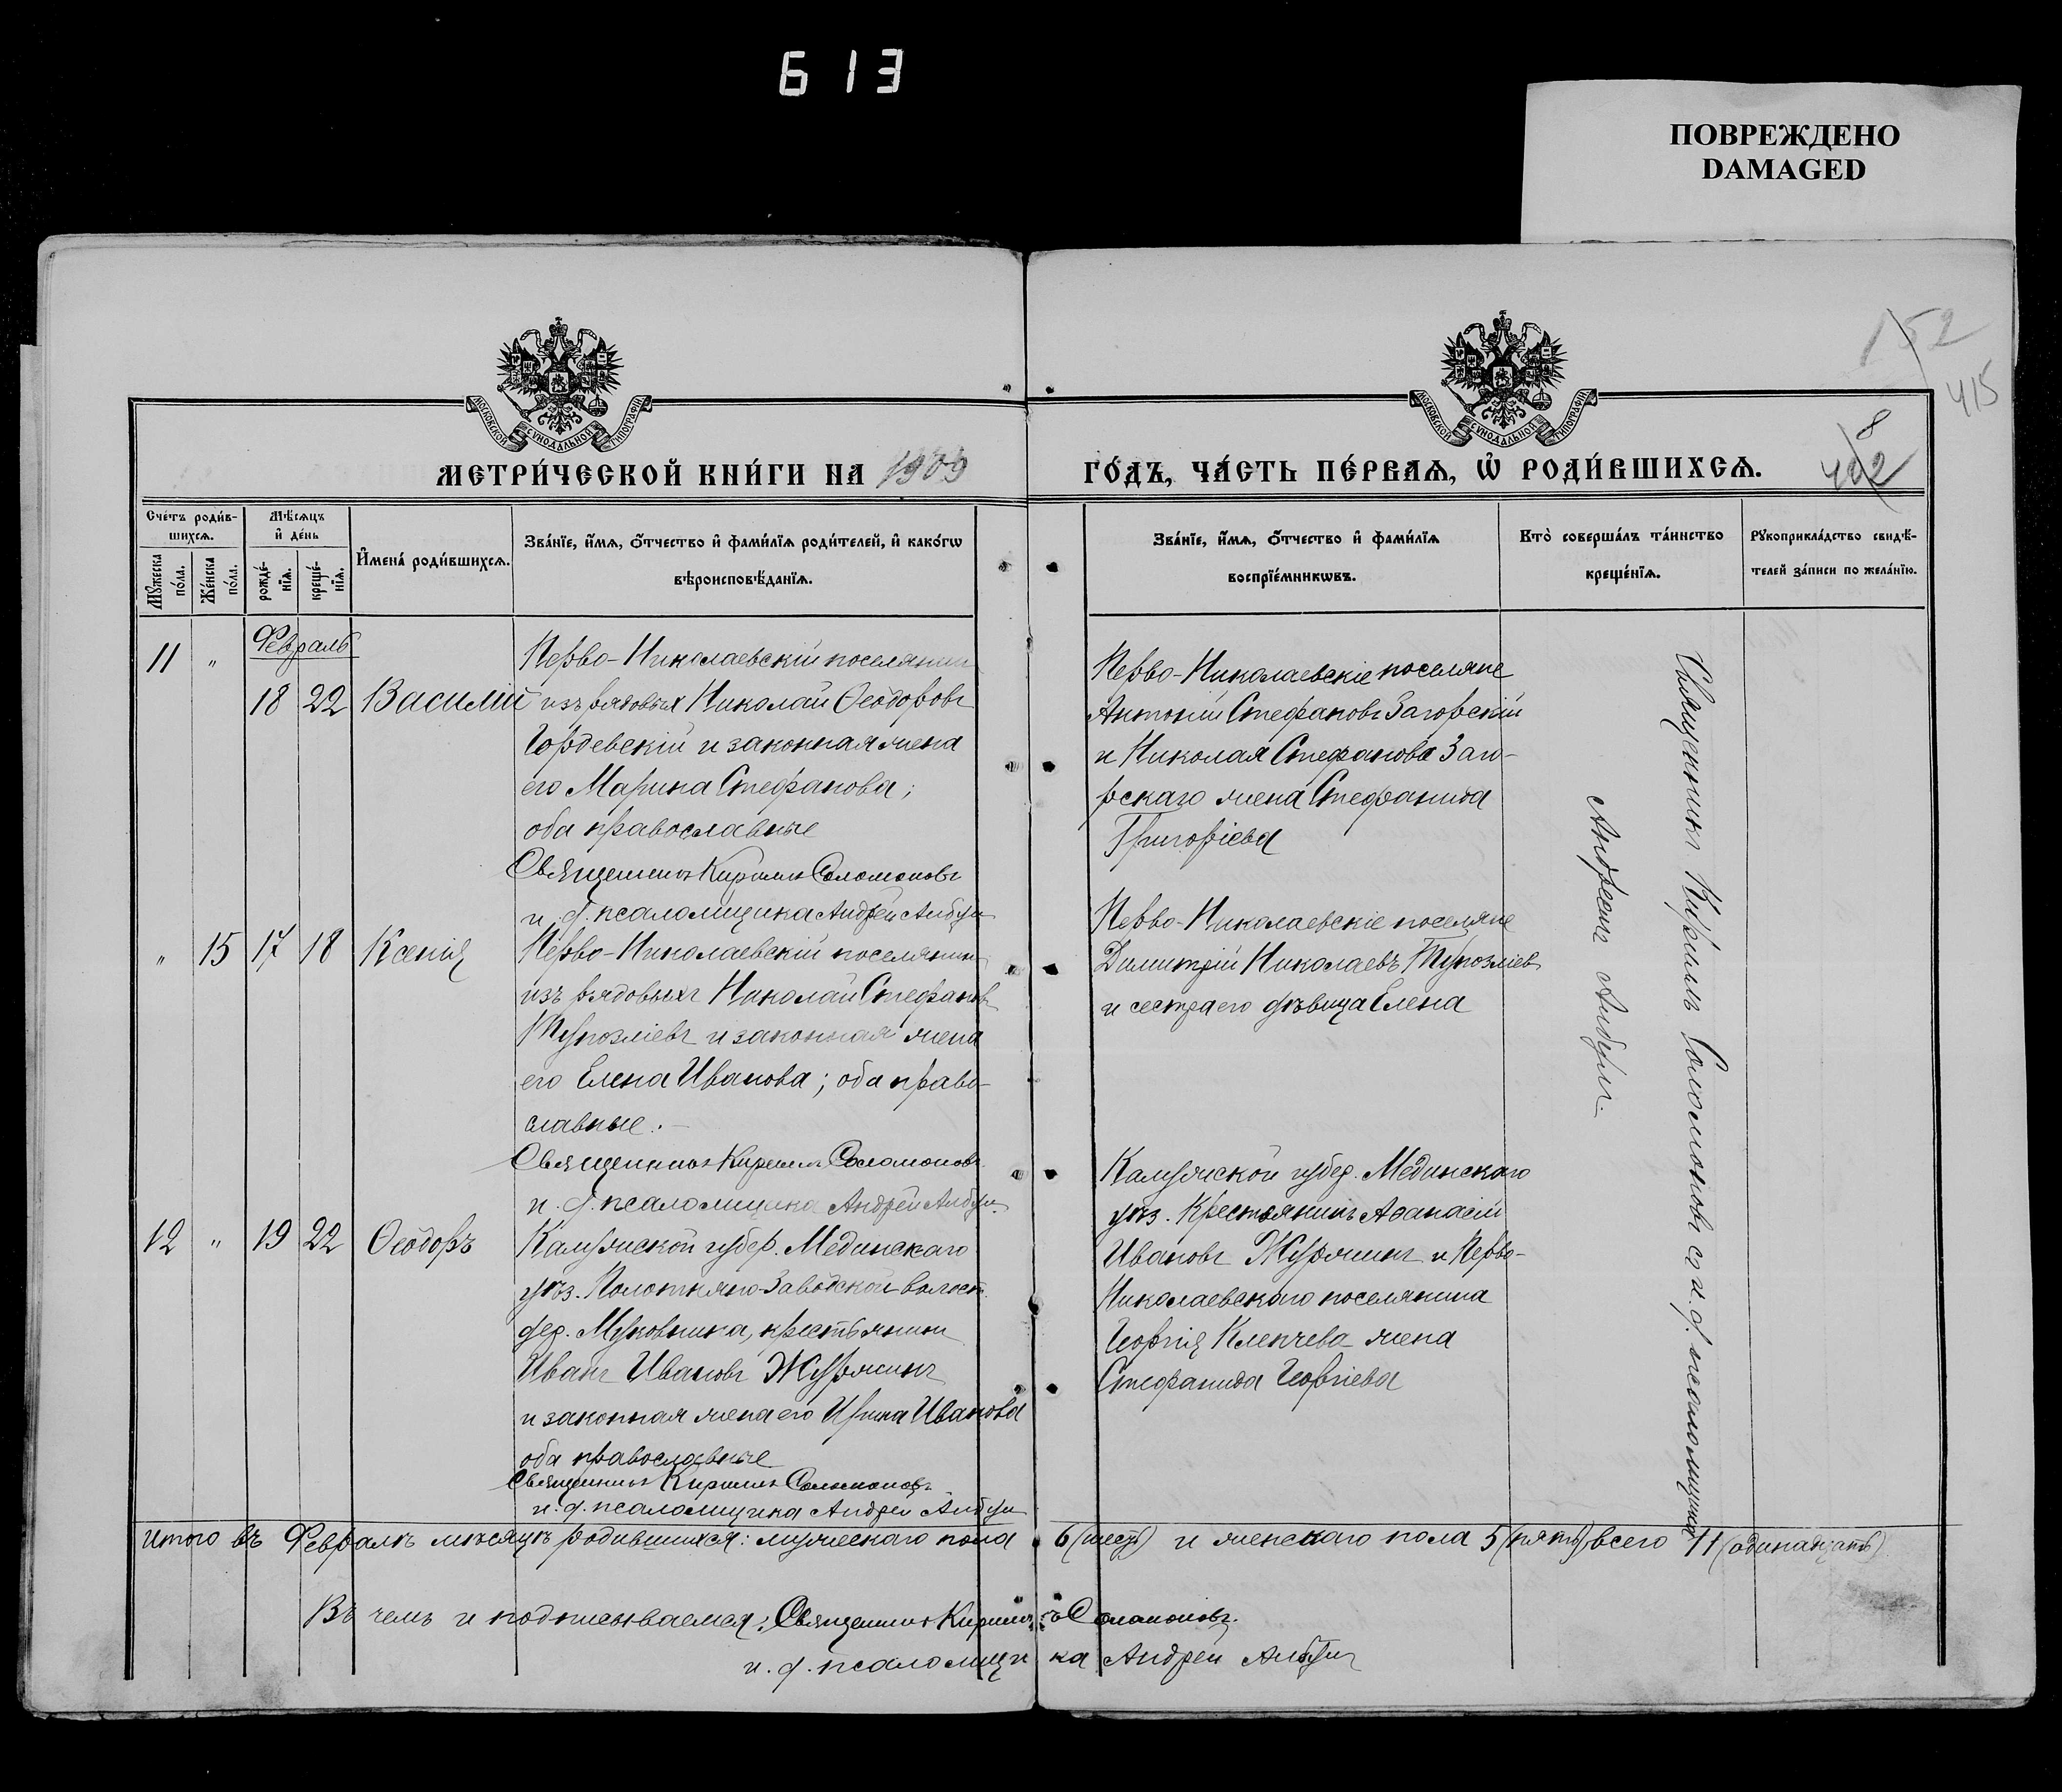 613
ПОВРЕЖДЕНО
DAMAGED
152
415
8
402
МОСКОВСКОЙ СУНОДАЛЬНОЙ ТИПОГРАФІИ
МОСКОВСКОЙ СУНОДАЛЬНОЙ ТИПОГРАФІИ
МЕТРИ́ЧЕСКОЙ КНИ́ГИ НА 1909
ГО́ДЪ, ЧА́СТЬ ПЕ́РВАѦ, Ѡ҆ РОДИ́ВШИХСѦ.
Сче́тъ роди́в-
шихсѧ.
Мꙋ́жеска по́ла.
Же́нска по́ла.
Мѣ́сѧцъ
и҆ де́нь
рожде́-
нїѧ.
креще́-
нїѧ.
И҆мена̀ роди́вшихсѧ.
Зва́нїе, и҆́мѧ, ѻ҆́тчество и҆ фами́лїѧ роди́телей, и҆ како́гѡ
вѣроисповѣ́данїѧ.
Зва́нїе, и҆́мѧ, ѻ҆́тчество и҆ фами́лїѧ
воспрїе́мникѡвъ.
Кто̀ соверша́лъ та́инство
креще́нїѧ.
Рꙋкоприкла́дство свидѣ́-
телей за́писи по жела́нїю.
Февраль
11 " 18 22 Василій
Перво-Николаевскій поселянинъ
изъ рядовыхъ Николай Ѳеодоровъ
Гордевскій и законная жена
его Марина Стефанова;
оба православные
Священникъ Кириллъ Соломоновъ
и. д. псаломщика Андрей Анбули
Перво-Николаевскіе поселяне
Антоній Стефановъ Загорскій
и Николая Стефанова Заго-
рскаго жена Стефанида
Григоріева
" 15 17 18 Ксенія
Перво-Николаевскій поселянинъ
изъ рядовыхъ Николай Стефановъ
Тунозліевъ и законная жена
его Елена Иванова; оба право-
славные.
Священникъ Кириллъ Соломоновъ
и. д. псаломщика Андрей Анбули
Перво-Николаевскіе поселяне
Димитрій Николаевъ Тунозліевъ
и сестра его дѣвица Елена
12 " 19 22 Ѳеодоръ
Калужской губер. Мединскаго
уѣз. Полотняно-Заводской волост.
дер. Муковнина, крестьянинъ
Иванъ Ивановъ Журжинъ
и законная жена его Ирина Иванова
оба православные
Священникъ Кириллъ Соломоновъ
и. д. псаломщика Андрей Анбули
Калужской губер. Мединскаго
уѣз. Крестьянинъ Аѳанасій
Ивановъ Журжинъ и Перво-
Николаевскаго поселянина
Георгія Кленчева жена
Стефанида Георгіева
Священникъ Кириллъ Соломоновъ съ и. д. псаломщика
Андреемъ Анбули.
Итого въ Февралѣ мѣсяцѣ родившихся: мужескаго пола 6 (шесть) и женскаго пола 5 (пять) всего 11 (одинанцать)
Въ чемъ и подписываемся: Священникъ Кириллъ Соломоновъ.
и. д. псаломщика Андрей Анбули